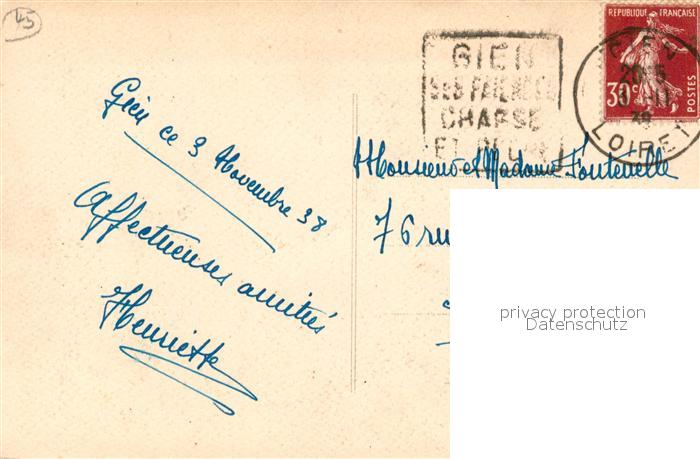 45
Gien ce 3 Novembre 38
Affectueuses amitiés
Henriette
GIEN
SES FAIENCES
CHASSE
ET
RÉPUBLIQUE FRANÇAISE
30c
POSTES
GIEN
38
LOIRET
Monsieur et Madame Fontenelle
76 ru
privacy protection
Datenschutz